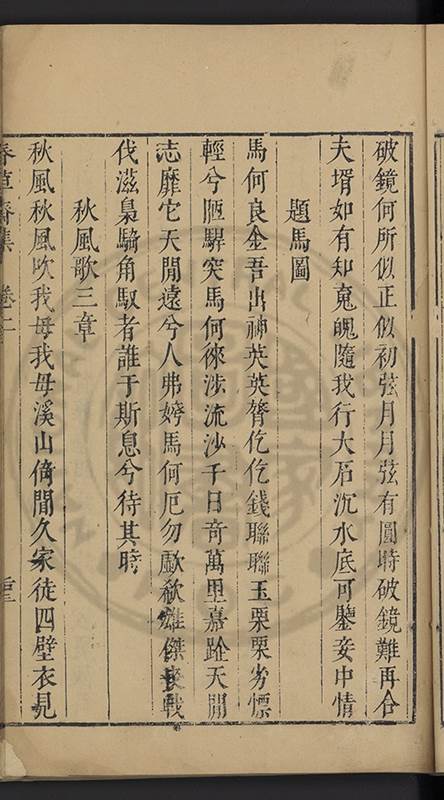 破鏡何所似正似初弦月月弦有圓時破鏡難再合
夫壻如有知䰟魄隨我行大石沉水底可鑒妾中情
題馬圖
馬何良金吾出神英英膂仡仡錢聯聯玉栗栗劣慓
輕兮陋驆突馬何徠涉流沙千日竒萬里嘉跐天閒
志靡它天閒遠兮人弗婞馬何厄勿歔欷雄傑喪戰
伐滋梟騎角馭者誰于斯息兮待其時
秋風歌三章
秋風秋風吹我母我母溪山倚閒久家徒四壁衣見
春草齋集 卷二